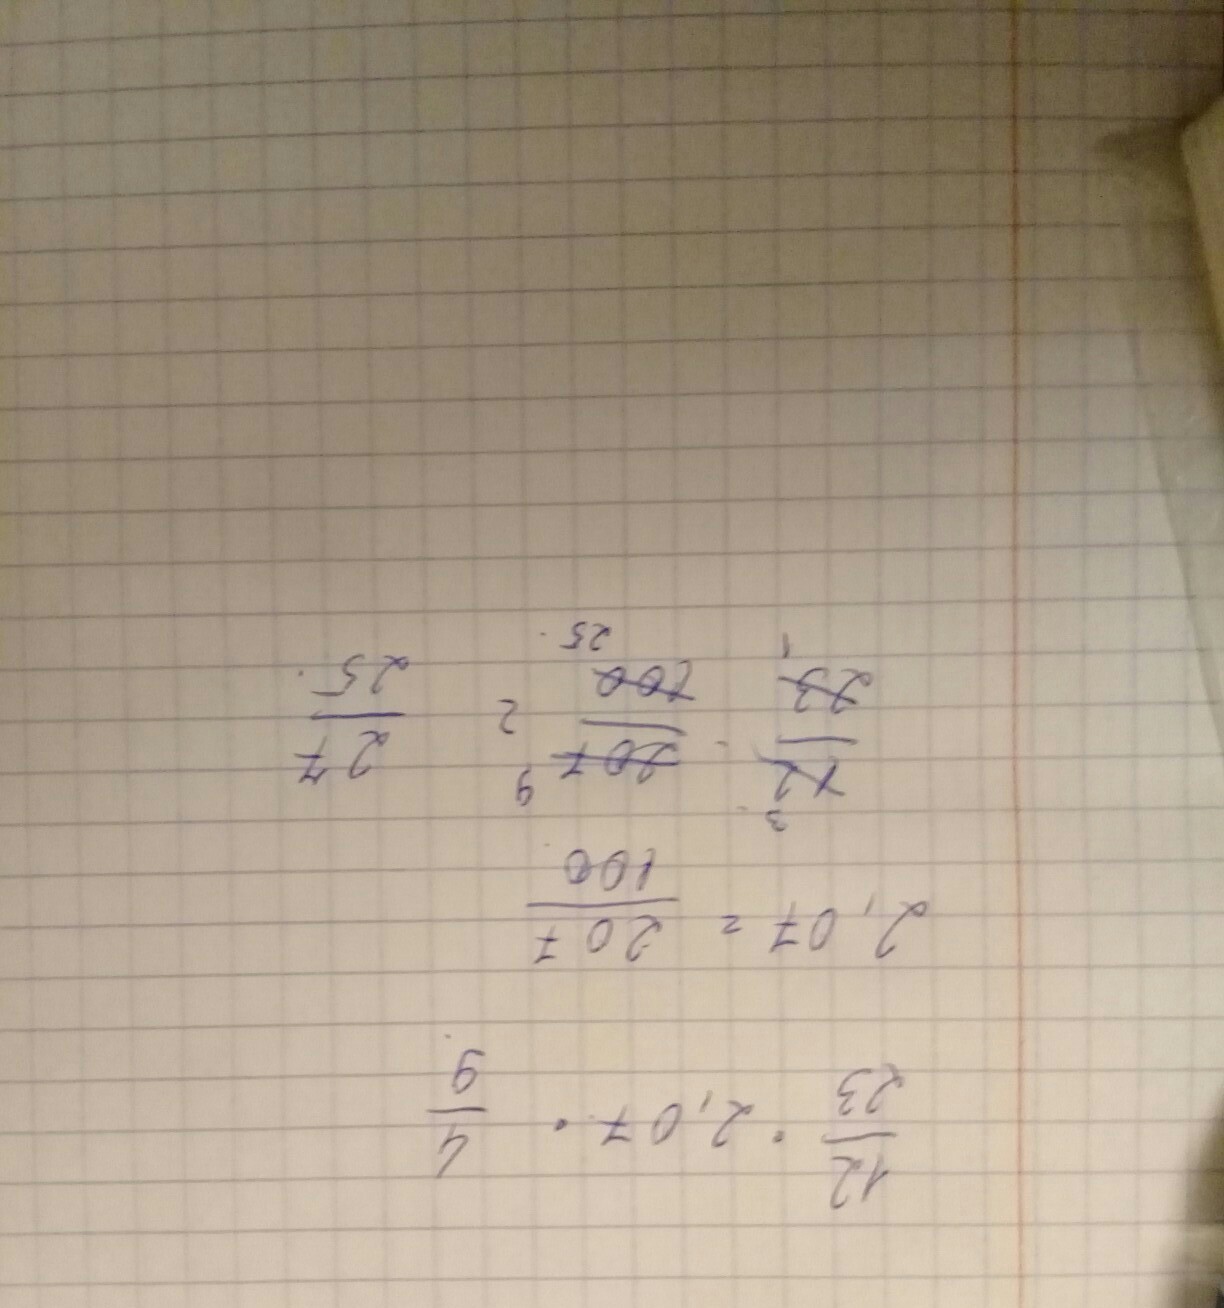 12/23 · 2,07 · 4/9
2,07 = 207/100
3 9
12/23 · 207/100 = 27/25
1 25